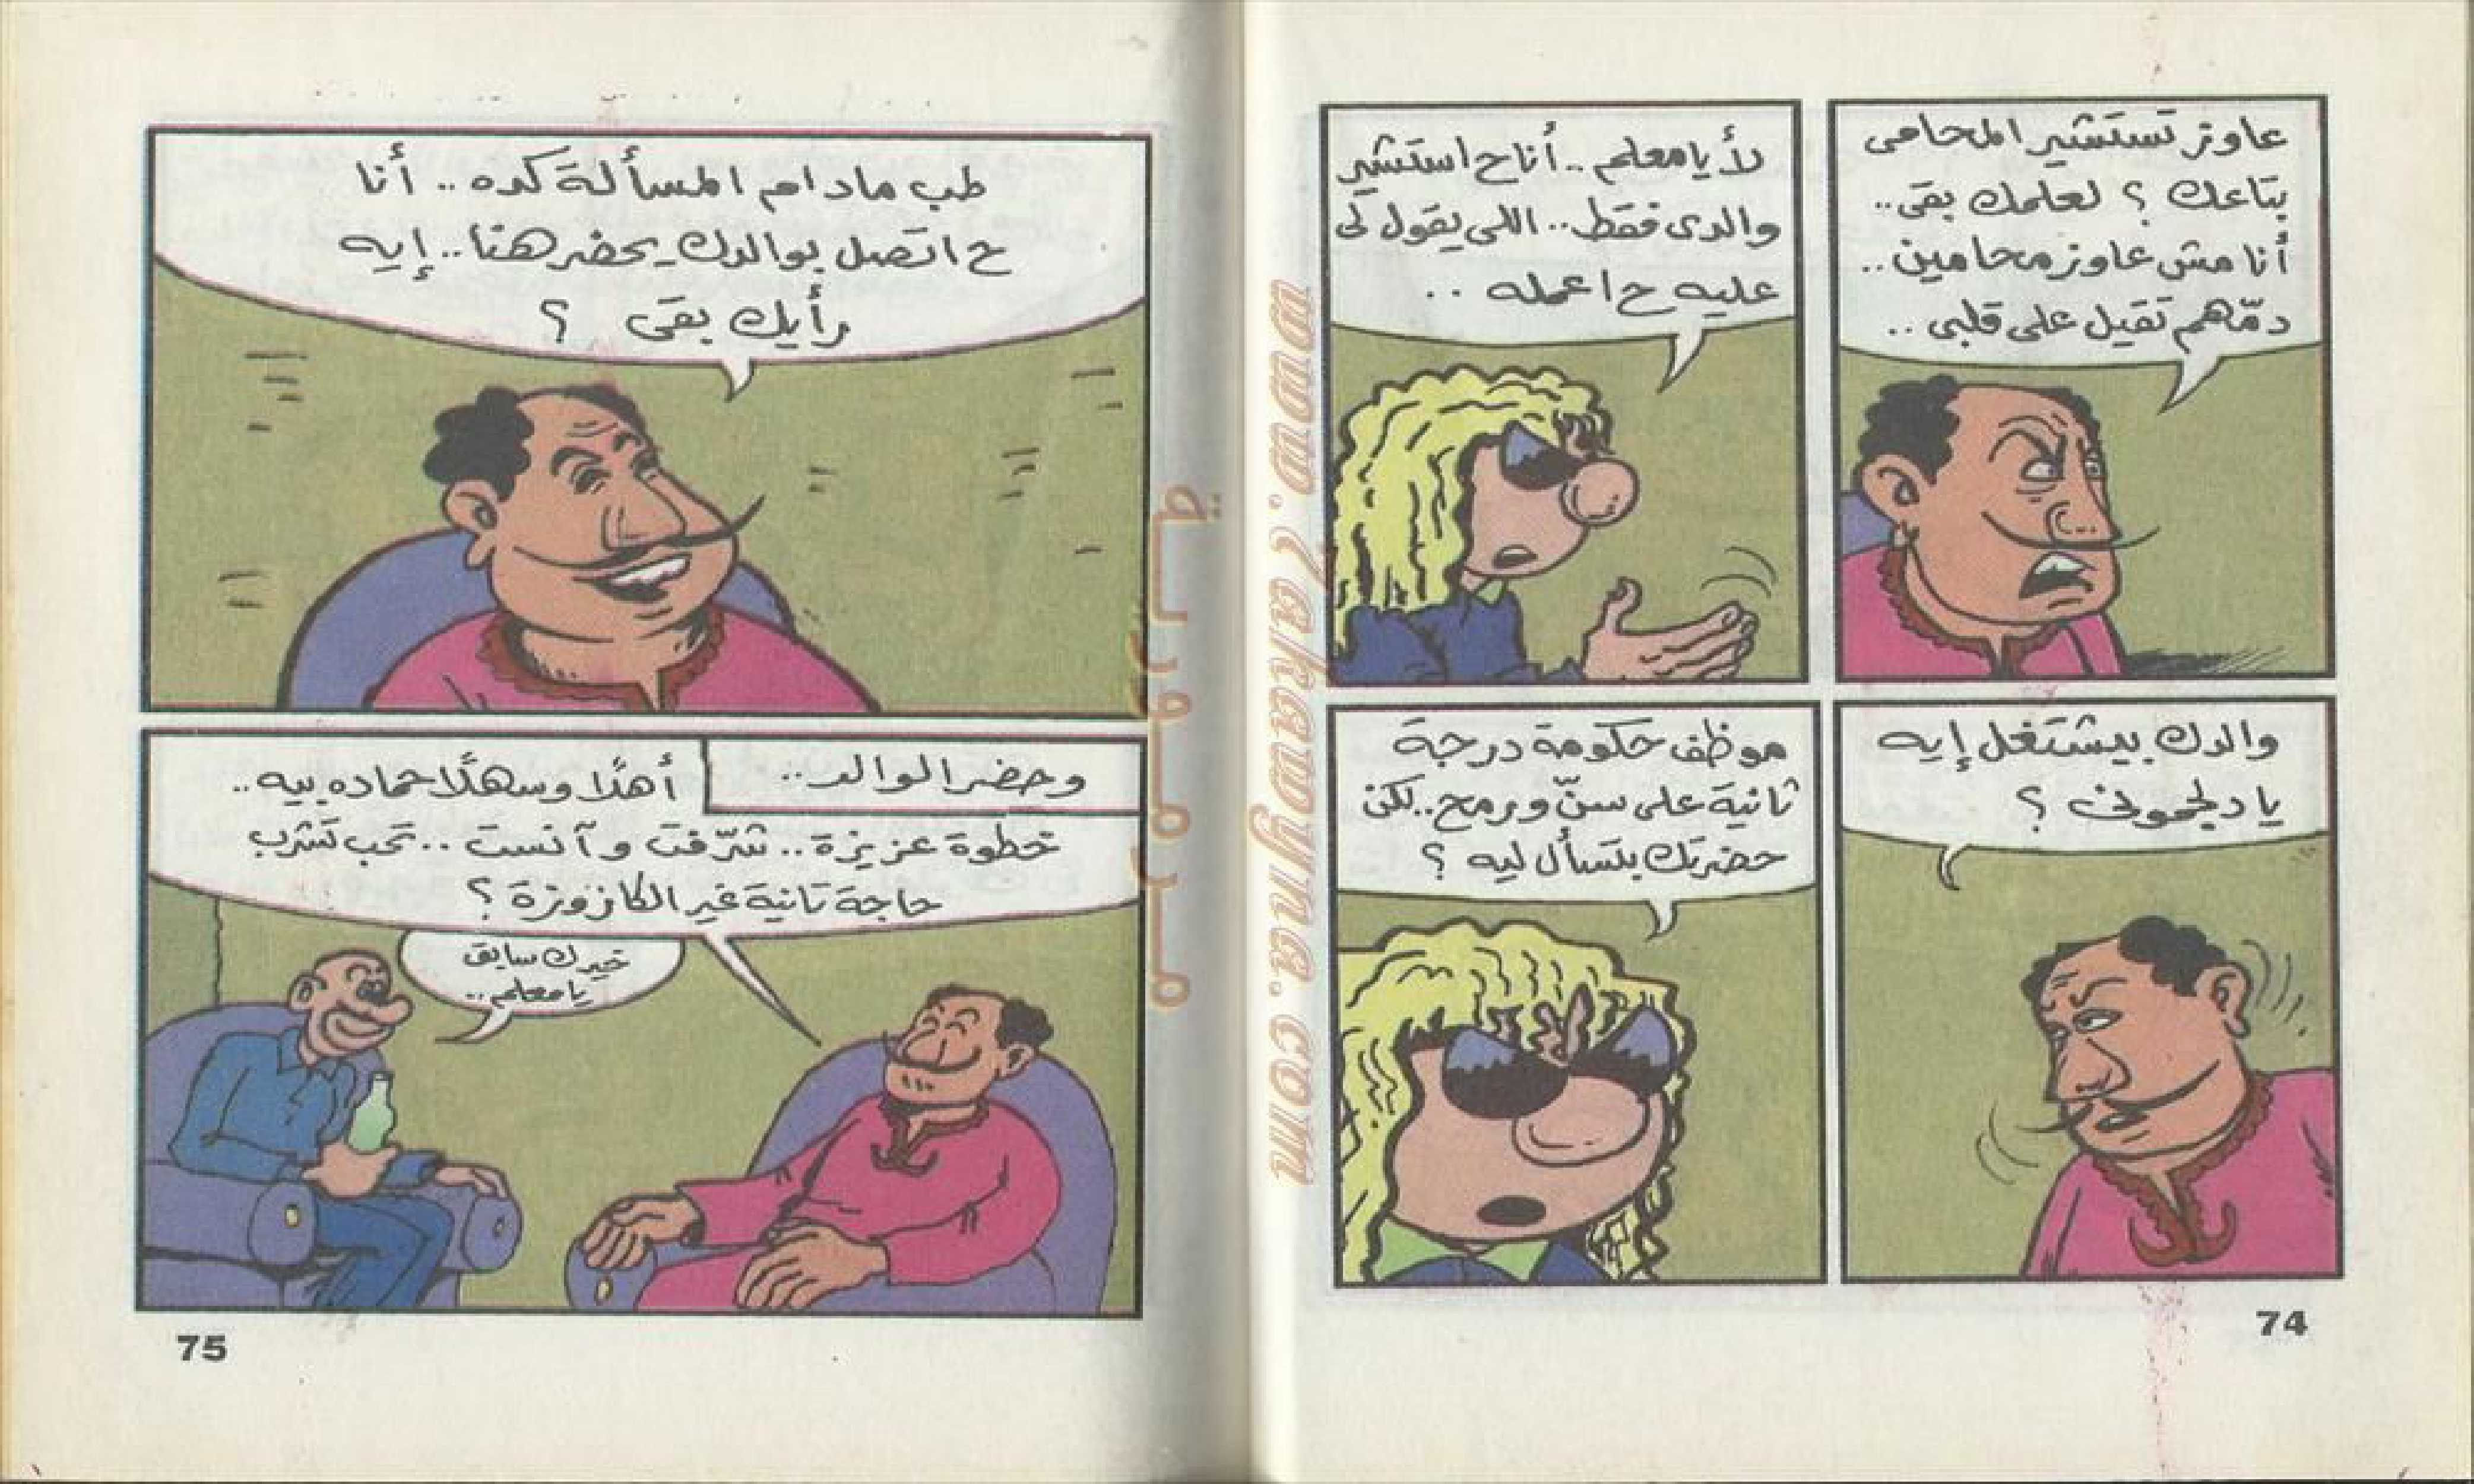 عاوز تستشير المحامى
بتاعك ؟ لعلمك بقى..
أنا مش عاوز محامين..
دمّهم تقيل على قلبى ..
لأ يا معلم .. أنا ح استشير
والدى فقط.. اللى يقول لى
عليه ح اعمله ..
والدك بيشتغل إيه
يا دلجمونى ؟
موظف حكومة درجة
ثانية على سنّ ورمح.. لكن
حضرتك بتسأل ليه ؟
74
طب مادام المسألة كده .. أنا
ح اتصل بوالدك يحضر هنا.. إيه
رأيك بقى ؟
وحضر الوالد..
أهلًا وسهلًا حماده بيه..
خطوة عزيزة.. شرّفت وآنست .. تحب تشرب
حاجة تانية غير الكازوزة ؟
خيرك سابق
يا معلم..
75
www.7akawyna.com